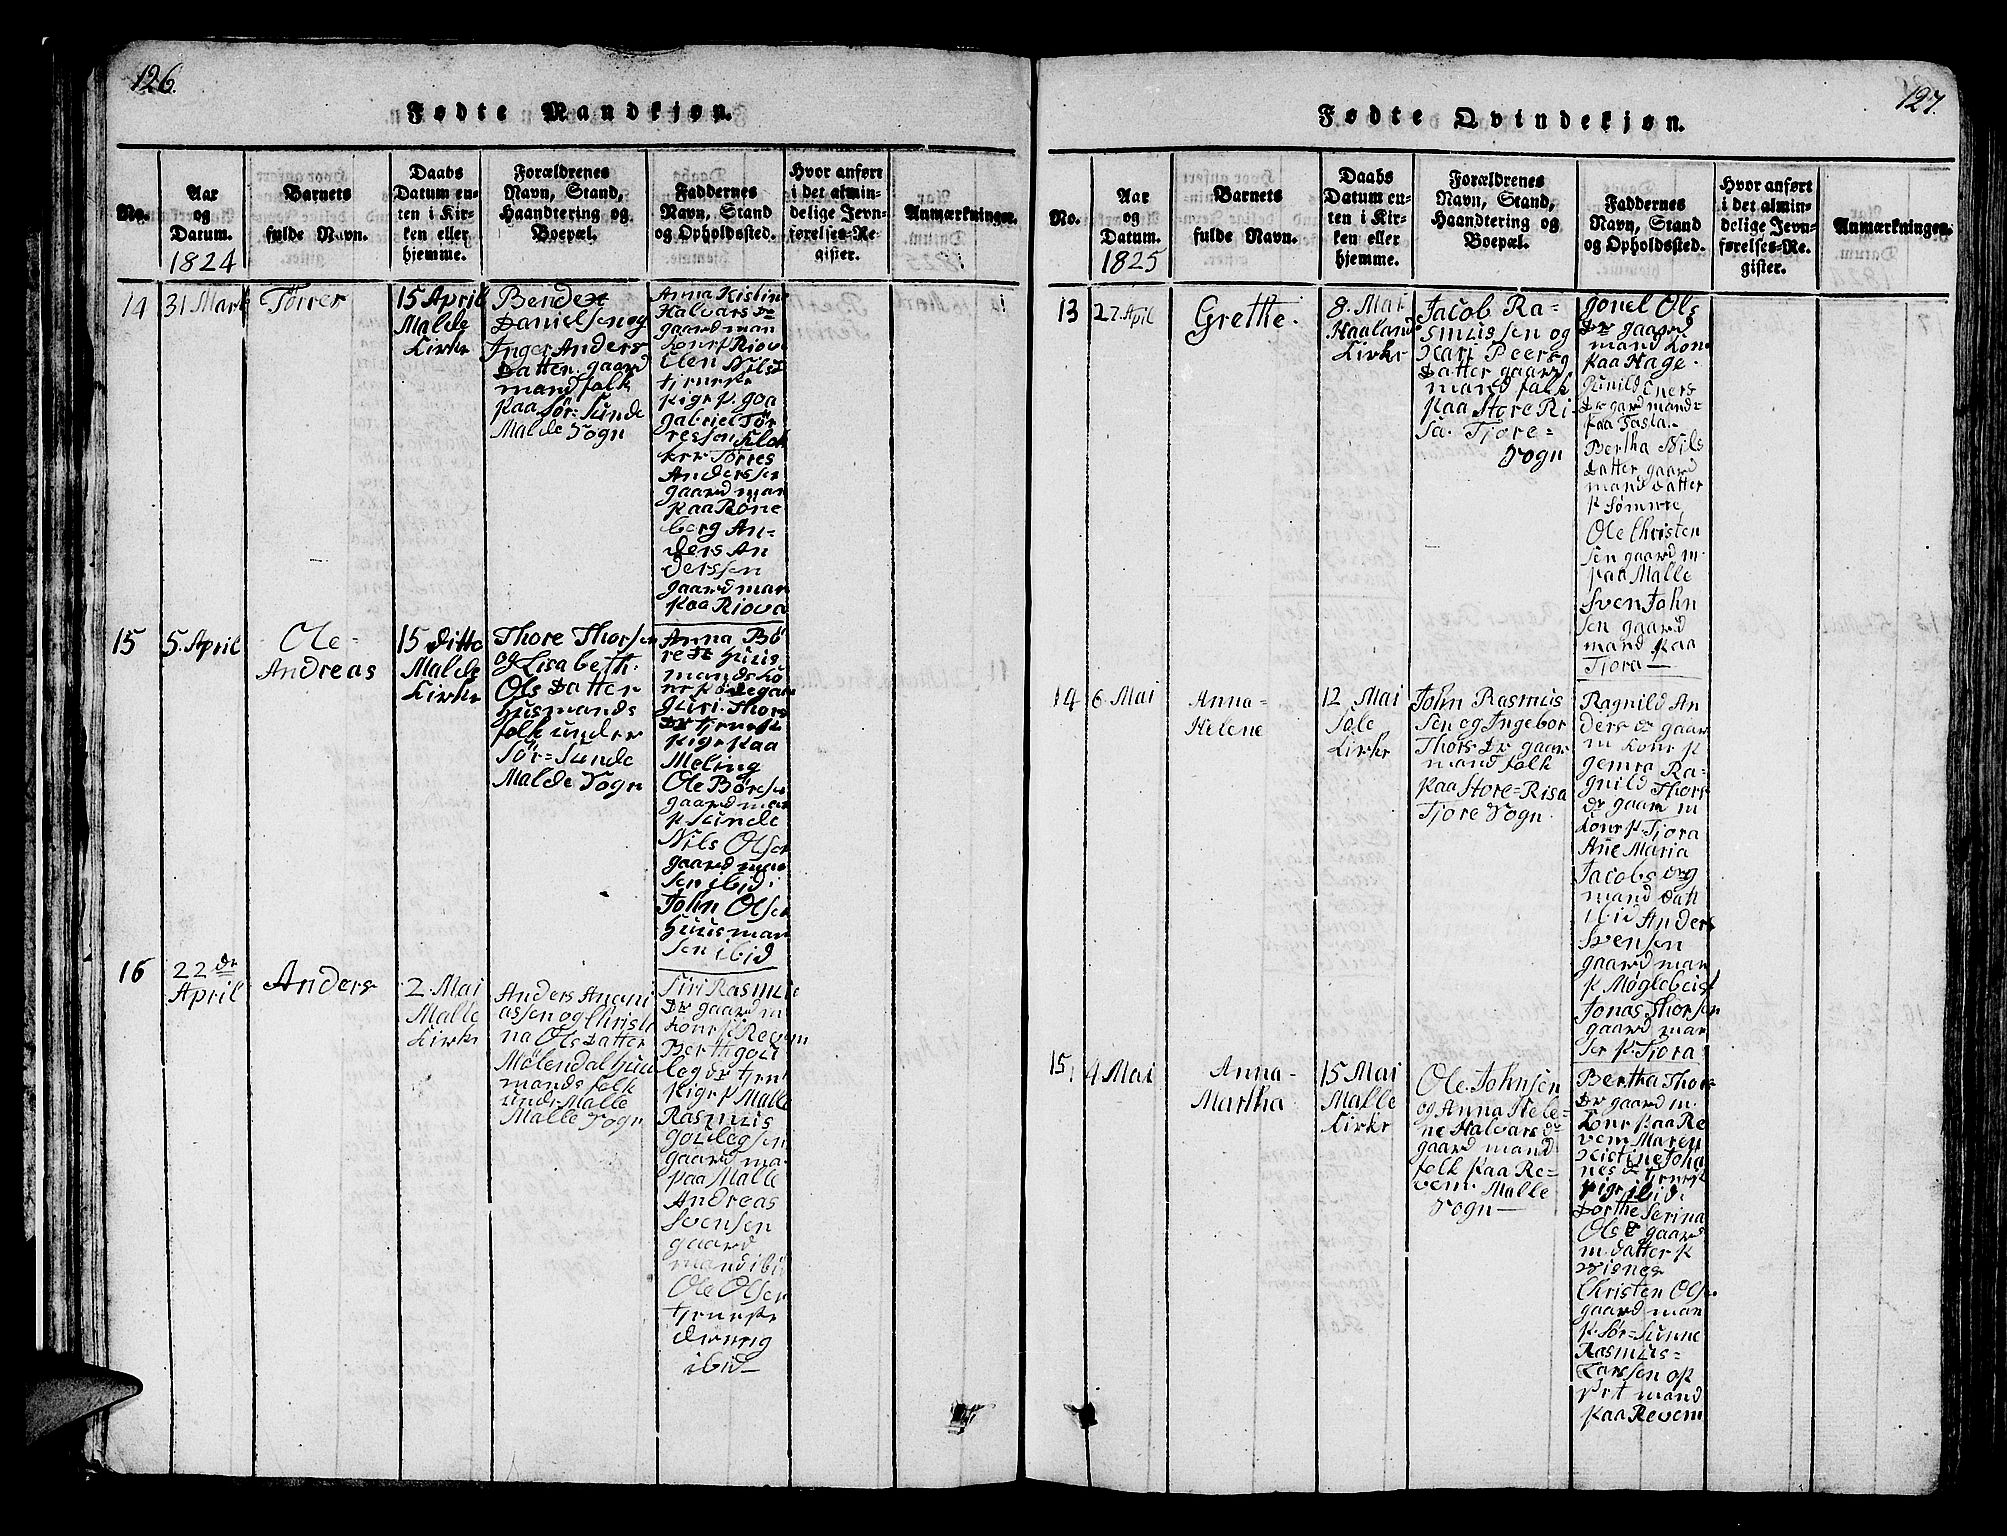 126.
Fødte Mandkjøn.
No.
Aar
og
Datum.
1824
Barnets
fulde Navn.
Daabs
Datum en-
ten i Kir-
ken eller
hjemme.
Forældrenes
Navn, Stand,
Haandtering og
Boepæl.
Faddernes
Navn, Stand
og Opholdssted.
Hvor anført
i det almin-
delige Jevn-
førelses-Re-
gister.
Anmærkninger.
14
31 Mart
Tørrer
15 April
Malde
Kirke
Bendex
Danielsen og
Inger Anders
Datter gaard
mand folk
paa Sör-Sunde
Malde Sogn
Anna Kistine
Halvars Dr
gaard man
kone p Riove
Elen Nilsd
tjeneste
pige p. goa
gabriel Tör
ressen Klok
ker Tørres
Anderssen
gaard man
paa Röne
berg An-
ders An
derssen
gaard man
paa Riova
15
5. April
Ole-
Andreas
15 ditto
Malde
Kirke
Thore Thorsen
og Lisabeth.
Ols Datter
husmands
folk under
Sør-Sunde
Malde Sogn
Anna Bö
re Dr Huus
mands ko
ne
guri. Thors
Dr tjeneste
pige paa
Meling
Ole Børesen
gaard man
p. Sunde
Nils Olsen
gaard man
sen ibid:
John Olsen
Huusman
sen ibid
16
22 de
April
Anders
2. Mai
Malle
Kirke
Anders Anani
assen og Christi
na Ols Datter
Mølendal huu
mands folk
under Malle
Malle Sogn
Siri Rasmus
Dr gaard m
kone p. Revem
Berth gou
leg Dr tjen
pige p Malle
Rasmus
goulegsen
gaard ma
paa Malle
Andreas
Svensen
gaard
mand ibid
Ole Olsen
tjeneste
dreng
ibid
127.
Fødte Qvindekjøn.
No.
Aar
og
Datum.
1825
Barnets
fulde Navn.
Daabs
Datum en-
ten i Kir-
ken eller
hjemme.
Forældrenes
Navn, Stand,
Haandtering og
Boepæl.
Faddernes
Navn, Stand
og Opholdssted.
Hvor anført
i det almin-
delige Jevn-
førelses-Re-
gister.
Anmærkninger.
13
27 April
Grethe.
8. Mai
Haaland
Kirke
Jacob Ra-
smussen og
Kari Peers
Datter gaard
mand folk
paa Store Ri-
sa. Tjore-
Sogn
gonel Ols
Dr gaard
mand kone
paa Hage.
gunild Eners
Dr gard mand
paa Tasta.
Bertha Nils
Datter gaard
mand datter
p Sømme
Ole Christen
sen gaard m.
paa Malle
Sven John
sen gaard
mand paa
Tjora
14
6 Mai
Anna-
Helene
12 Mai
Sole
Kirke
John Rasmus
sen og Ingebor
Thors Dr gaar
mand folk
paa Store-Risa
Tjore Sogn
Ragnild An
ders Dr gaar
m kone p
gemra Ra-
gnild Thors
Dr gaar m
kone p. Tjora
Ane Maria
Jacobs Dr g
mand datt
ibid Anders
Svensen
gaard man
p Møglebeist
Jonas Thorsen
gaard man
sen p. Tjora
15.
4 Mai
Anna-
Martha
15 Mai
Malle
Kirke
Ole Johnsen
og Anna Hele-
ne Halvars Dr
gaard mand
folk paa Re-
vem. Malle
Sogn
Bertha Thor-
Dr gaard m.
kone paa Re
vem Maren
Kistine Joha
nes Dr tjenest
pige ibid.
Dorthe Serina
Ols Dr gaard
m. datter p
Visnes
Christen Ols.
gaard man
p. Sør-Sunne
Rasmus-
Larssen op
sit mand
paa Revem